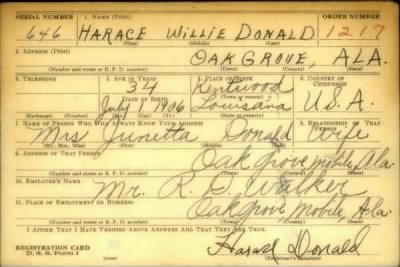 SERIAL NUMBER 1. NAME (Print) ORDER NUMBER
646 HARACE WILLIE DONALD 1217
(First) (Middle) (Last)
2. ADDRESS (Print)
OAK GROVE, ALA.
(Number and street or R. F. D. number) (Town) (County) (State)
3. TELEPHONE 4. AGE IN YEARS 5. PLACE OF BIRTH 6. COUNTRY OF CITIZENSHIP
34 Kentwood
DATE OF BIRTH (Town or county)
July 1 1906 Louisiana U.S.A.
(Exchange) (Number) (Mo.) (Day) (Yr.) (State or country)
7. NAME OF PERSON WHO WILL ALWAYS KNOW YOUR ADDRESS 8. RELATIONSHIP OF THAT PERSON
Mrs Junietta Donald Wife
(Mr., Mrs., Miss) (First) (Middle) (Last)
9. ADDRESS OF THAT PERSON
Oak grove, mobile, Ala.
(Number and street or R. F. D. number) (Town) (County) (State)
10. EMPLOYER'S NAME
Mr. R. D. Walker
11. PLACE OF EMPLOYMENT OR BUSINESS
Oak grove, Mobile, Ala.
(Number and street or R. F. D. number) (Town) (County) (State)
I AFFIRM THAT I HAVE VERIFIED ABOVE ANSWERS AND THAT THEY ARE TRUE.
REGISTRATION CARD
D. S. S. Form 1
Harace Donald
(Registrant's signature)